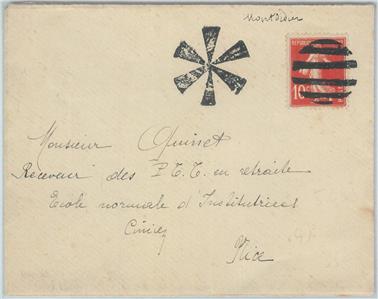 Montdidier
REPUBLIQUE
10
Monsieur Quinset
Receveur des P.T.T. en retraite
Ecole normale d'Institutrices
Cimiez
Nice